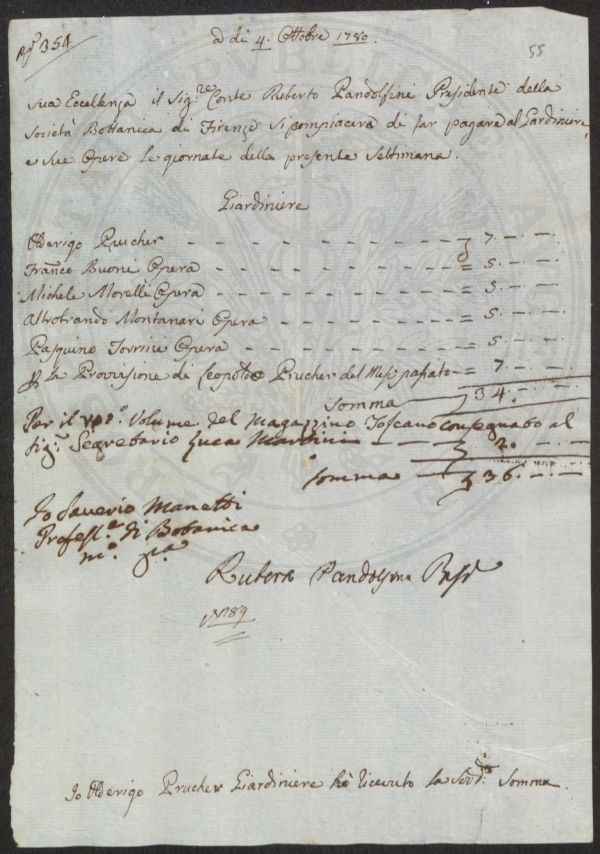 354
55
a di 4. Ottobre 1780.
Sua Eccellenza il Sig.re Conte Ruberto Pandolfini Presidente della
Società Bottanica di Firenze si compiacerà di far pagare al Giardiniere,
e sue Opere le giornate della presente Settimana.
Giardiniere
Aderigo Prucher - - - - 7.-.-
Franc.o Buoni Opera - - - - = 5.-.-
Michele Morelli Opera - - - - = 5.-.-
Altobrando Montanari Opera - - - - = 5.-.-
Pasquino Torrini Opera - - - - = 5.-.-
P la Provisione di Leopoldo Prucher del Mese passato - = 7.-.-
Somma 34.-.-
Per il Volume del Magazzino Toscano consegnato al
Sig.r Segretario Luca Martini - - 2.-.-
Somma 36.-.-
Io Saverio Manetti
Profess.e di Botanica
m.o p.a
Pandolfini
N 89
Io Aderigo Prucher Giardiniere hò ricevuto la Sud.a Somma.